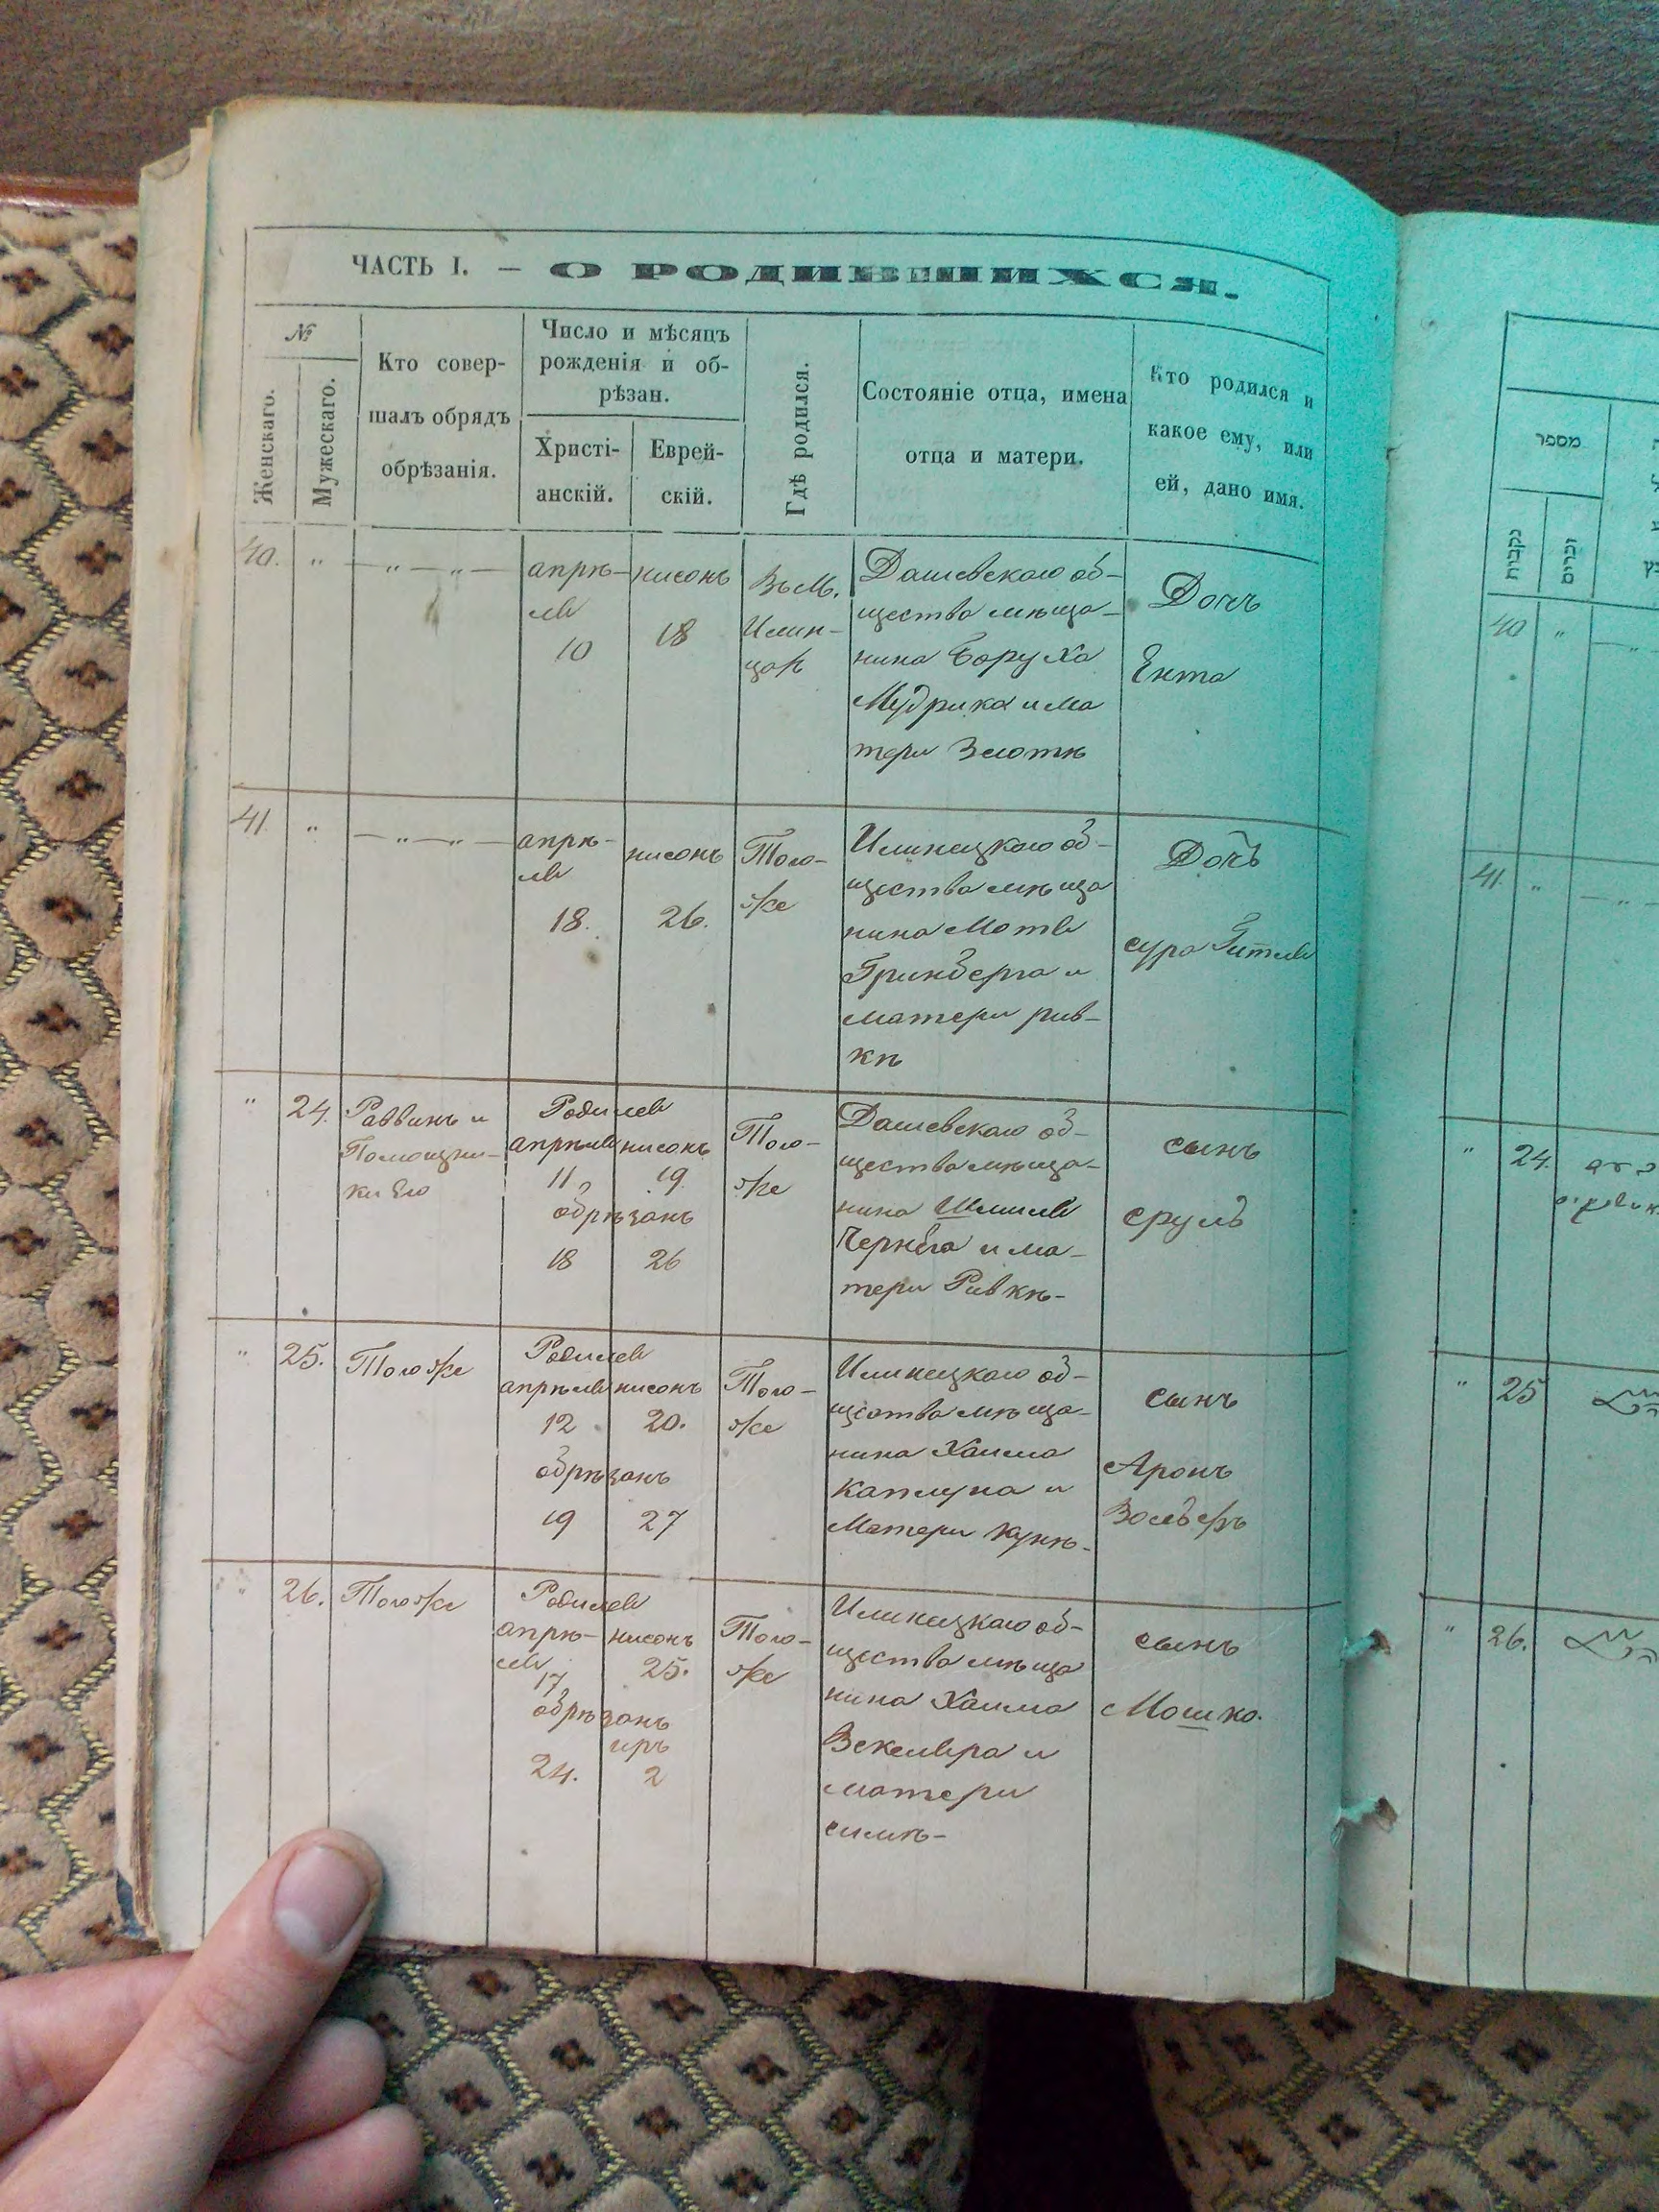 ЧАСТЬ I. — О РОДИВШИХСЯ.
№
Женскаго.
Мужескаго.
Кто совер-
шалъ обрядъ
обрѣзанія.
Число и мѣсяцъ
рожденія и об-
рѣзан.
Христі-
анскій.
Еврей-
скій.
Гдѣ родился.
Состояніе отца, имена
отца и матери.
Кто родился и
какое ему, или
ей, дано имя.
40. " — " — " —
апрѣ-
ля
10
нисонъ
18
Въ М.
Илин-
цах
Дашевскаго об-
щества мѣща-
нина Боруха
Мудрика и ма
тери Злотѣ
Дочь
Ента
41. " — " — " —
апрѣ-
ля
18.
нисонъ
26.
Того-
же
Илинецкаго об-
щества мѣща
нина Мотя
Гринберга и
матери рив-
кѣ
Дочь
сура Гитля
" 24.
Раввинъ и
Помощни-
ки Его
Родился
апрѣля нисонъ
11 19.
обрѣзанъ
18 26
Того-
же
Дашевскаго об-
щества мѣща-
нина
и ма-
тери Ривкѣ-
сынъ
сруль
" 25.
Того же
Родился
апрѣля нисонъ
12 20.
обрѣзанъ
19 27
Того-
же
Илинецкаго об-
щества мѣща-
нина Хаима
Каплуна и
Матери Кунѣ-
сынъ
Аронъ
Вольфъ
" 26.
Того же
Родился
апрѣ- нисонъ
ля
17 25.
обрѣзанъ
иръ
24. 2
Того-
же
Илинецкаго об-
щества мѣща
нина Хаима
Векслера и
матери
симѣ-
сынъ
Мошко.
מספר
נקבות
זכרים
40 "
41. "
" 24.
" 25
" 26.